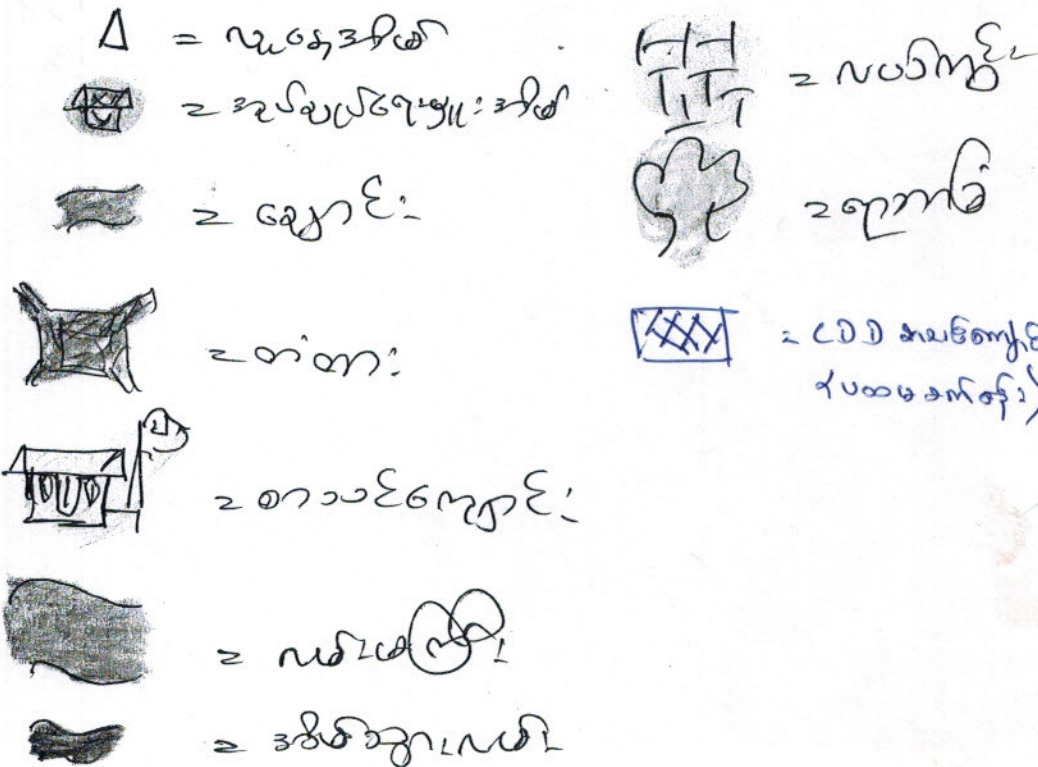 = လူနေအိမ်
= အုပ်ချုပ်ရေးမှူးအိမ်
= ချောင်း
= တံတား
= စာသင်ကျောင်း
= လမ်းမကြီး
= အိမ်သွားလမ်း
= လယ်ကွင်း
= ရာဘာခြံ
= CDD
(ပထမစက်ဝန်း)